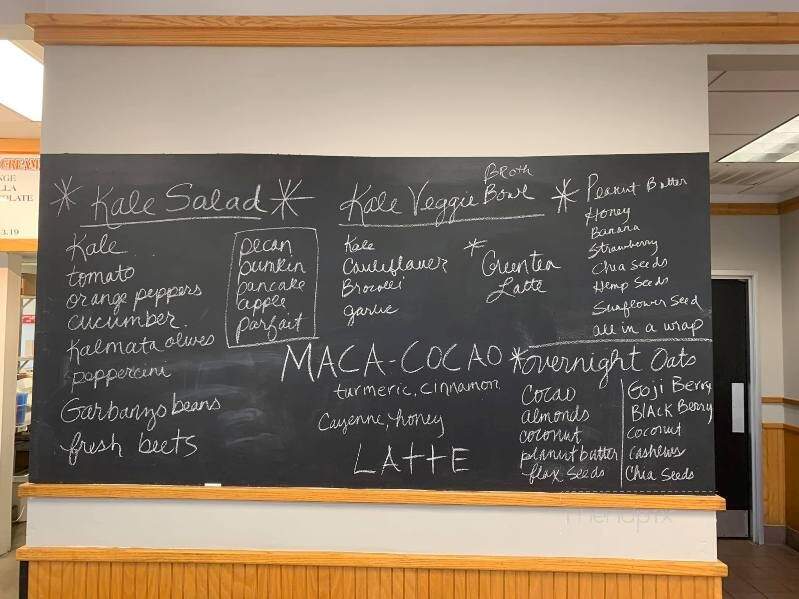 CREAM
NGE
LLA
OLATE
3.19
* Kale Salad *
Kale
tomato
orange peppers
cucumber
Kalmata olives
poppercini
Garbanzo beans
fresh beets
pecan
punkin
pancake
apple
parfait
Kale Veggie Broth Bowl
Kale
Cauliflauer
Brocolli
garlic
* Green tea
Latte
* Peanut Butter
Honey
Banana
Strawberry
Chia Seeds
Hemp Seeds
Sunflower Seed
all in a wrap
MACA-COCAO
turmeric, cinnamon
Cayenne, honey
LAttE
*overnight Oats
Cocao
almonds
coconut
peanut butter
flax seeds
Goji Berry
BlAck Berry
Coconut
Cashews
Chia Seeds
menupix